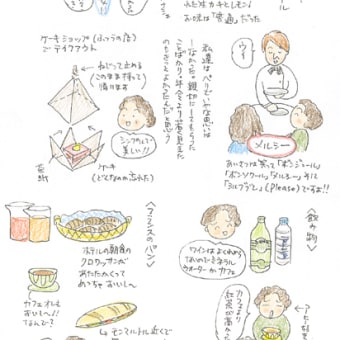 れた生カキとレモン!
お味は「普通」だった
ウイ
メルシー
あいさつは笑って「ボンジュール」
「ボンソワール」「メルシー」そして
「シルブプレ」(Please)ですよ!!
私達は、パリでいやな思いは
しなかった。親切にしてもらった
ことばかり。年令より若く見えた
のもきっとよかったんだと思う
ケーキショップ(ふつうの店)
でテイクアウト
ねじって止める
(このまま持って
帰ります
シンプルで
美しい!!
包
紙
ケーキ
(どんなのか忘れた)
<飲み物>
ワインはよくわから
ないのでミネラル
ウォーターか カフェ
カフェより
紅茶が高かっ
<フランスのパン>
ホテルの朝食の
クロワッサンが
あたたかくって
めっちゃ おいし〜!
カフェオレも
おいし〜!!
なんで?
モンマルトル近くで